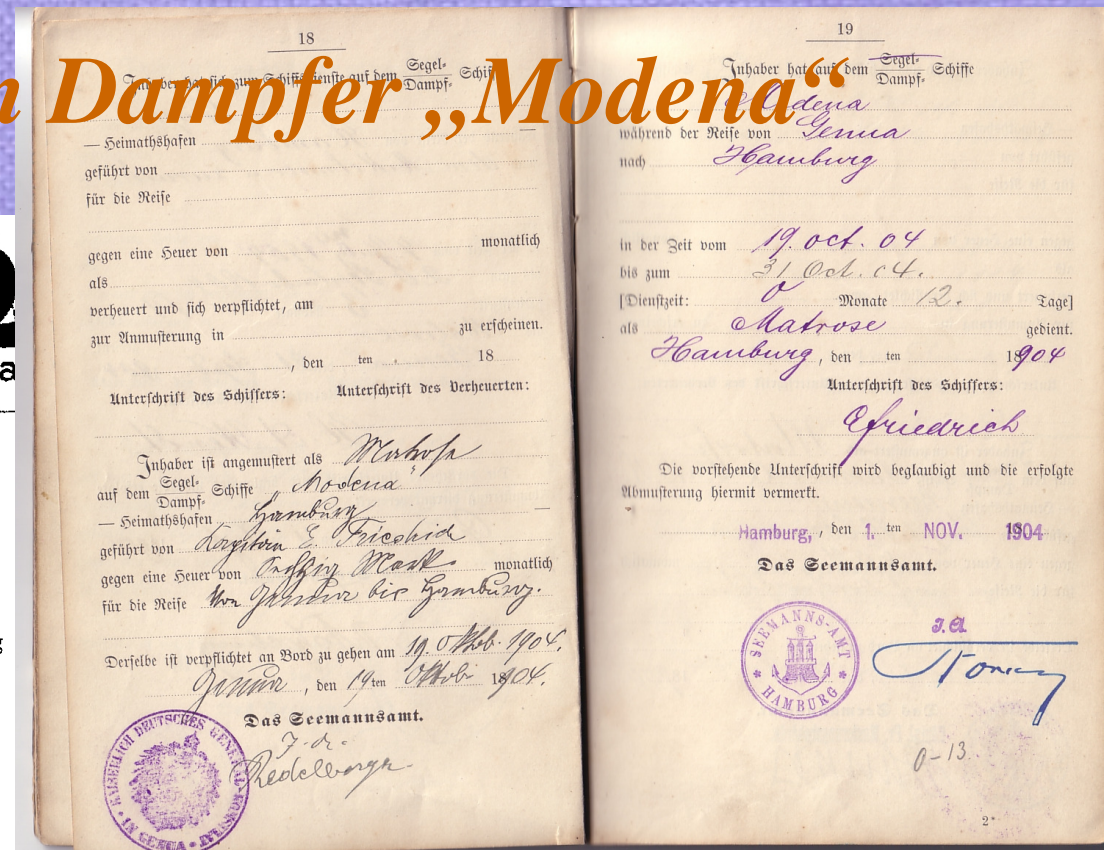 n Dampfer „Modena“
18
Inhaber hat sich zum Schiffsdienste auf dem Segel- Dampf- Schiffe
— Heimathshafen —
geführt von
für die Reise
gegen eine Heuer von monatlich
als
verheuert und sich verpflichtet, am
zur Anmusterung in zu erscheinen.
, den ten 18
Unterschrift des Schiffers: Unterschrift des Verheuerten:
Inhaber ist angemustert als Matrose
auf dem Segel- Dampf- Schiffe „Modena"
— Heimathshafen Hamburg —
geführt von Kapitän E. Friedrich
gegen eine Heuer von Sechzig Mark monatlich
für die Reise Von Genua bis Hamburg.
Derselbe ist verpflichtet an Bord zu gehen am 19. Oktob. 1904.
Genua, den 19ten Oktob 1904.
Das Seemannsamt.
KAISERLICH DEUTSCHES GENERAL-KONSULAT
IN GENUA
19
Inhaber hat auf dem Segel- Dampf- Schiffe
Modena
während der Reise von Genua
nach Hamburg
in der Zeit vom 19. oct. 04
bis zum 31 Oct. 04.
[Dienstzeit: 0 Monate 12. Tage]
als Matrose gedient.
Hamburg, den ten 1904
Unterschrift des Schiffers:
Efriedrich
Die vorstehende Unterschrift wird beglaubigt und die erfolgte
Abmusterung hiermit vermerkt.
Hamburg, , den 1. ten NOV. 1904
Das Seemannsamt.
SEEMANNS-AMT
HAMBURG
J.A
0-13
2*